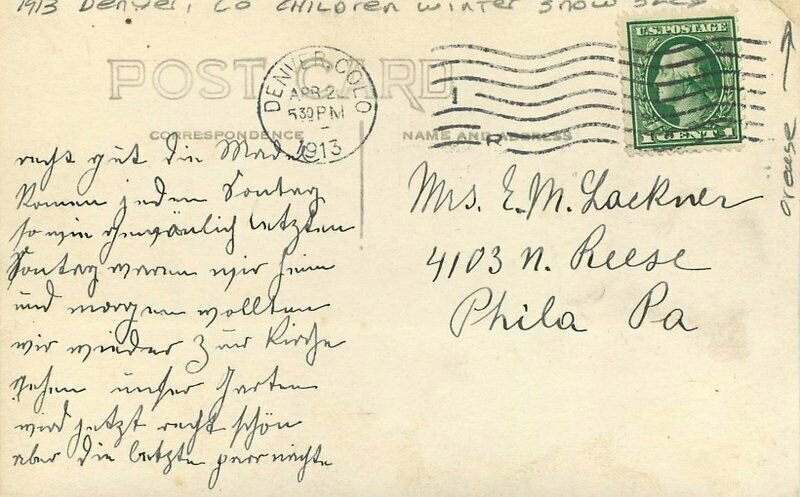 1913 Denver, CO CHILDREN WINTER SNOW SLED
U.S. POSTAGE
1 CENT 1
POST CARD
DENVER, COLO
APR 2
530 PM
1913
1
R
CORRESPONDENCE
NAME AND ADDRESS
recht gut die Madel
komen jeden Sontag
so wie gewönlich letzten
Sontag waren wir heim
und morgen wollten
wir wieder zur Kirche
gehen unser Garten
wird jetzt recht schön
aber die letzten paar nächte
Mrs. E. M. Lackner
4103 N. Reese
Phila Pa
crease